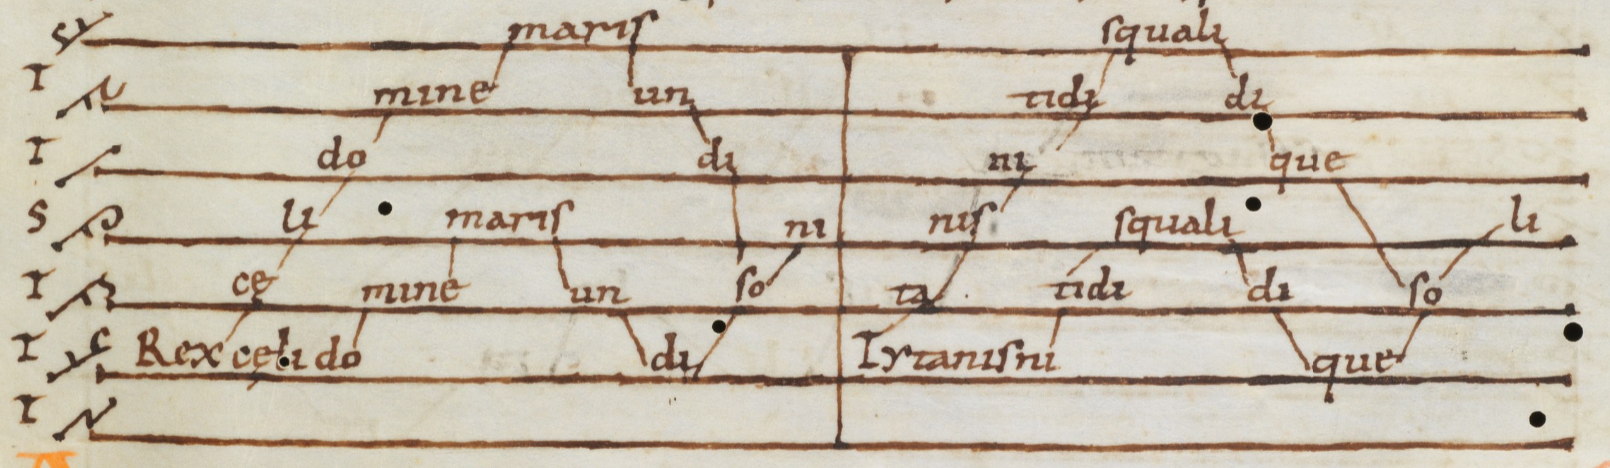 maris squali
T mine un tidi di
T do di ni que
S li maris ni nis squali li
T ce mine un so ta tidi di so
T Rex celi do di Tytanis ni que
T